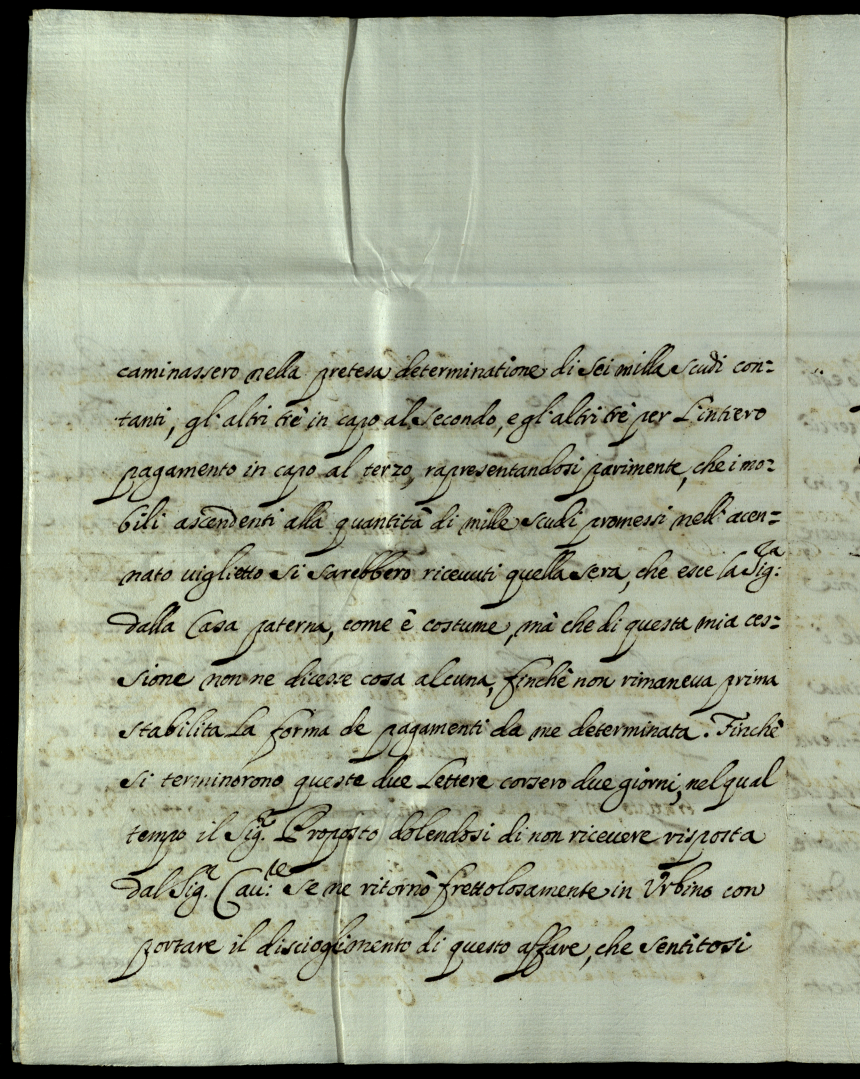 caminassero nella pretesa determinatione di sei milla scudi con=
tanti, gl'altri trè in capo al secondo, e gl'altri trè per L'intiero
pagamento in capo al terzo, rapresentandosi parimente, che i mo=
bili ascendenti alla quantità di mille scudi promessi nell'acen=
nato viglietto si sarebbero riceuuti quella sera, che esce la Sig:ra
dalla Casa paterna, come è costume, mà che di questa mia ces=
sione non ne dicesse cosa alcuna, finchè non rimaneua prima
stabilita la forma de pagamenti da me determinata. Finchè
si terminorono queste due Lettere corsero due giorni, nel qual
tempo il Sig.r Proposto dolendosi di non riceuere risposta
dal Sig.r Cau:te se ne ritornò frettolosamente in Vrbino con
portare il discioglimento di questo affare, che sentitosi